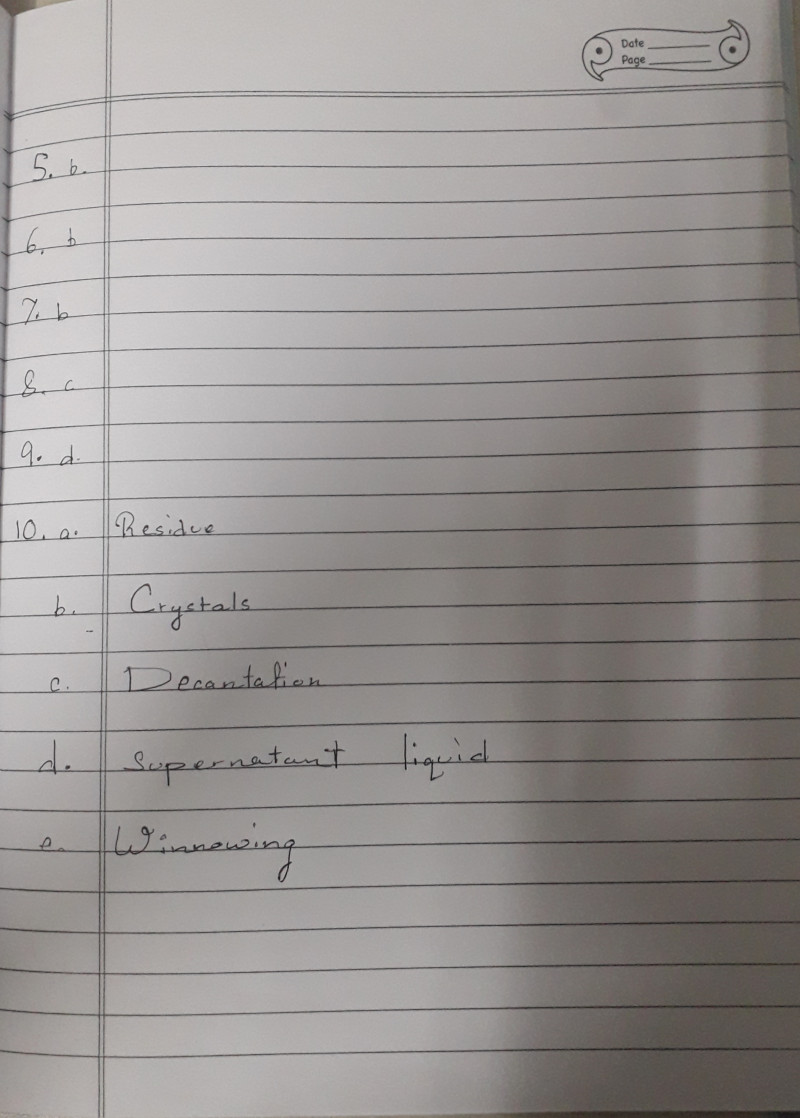 Date
Page
5. b.
6. b
7. b
8. c
9. d.
10. a. Residue
b. Crystals
c. Decantation
d. Supernatant liquid
e. Winnowing